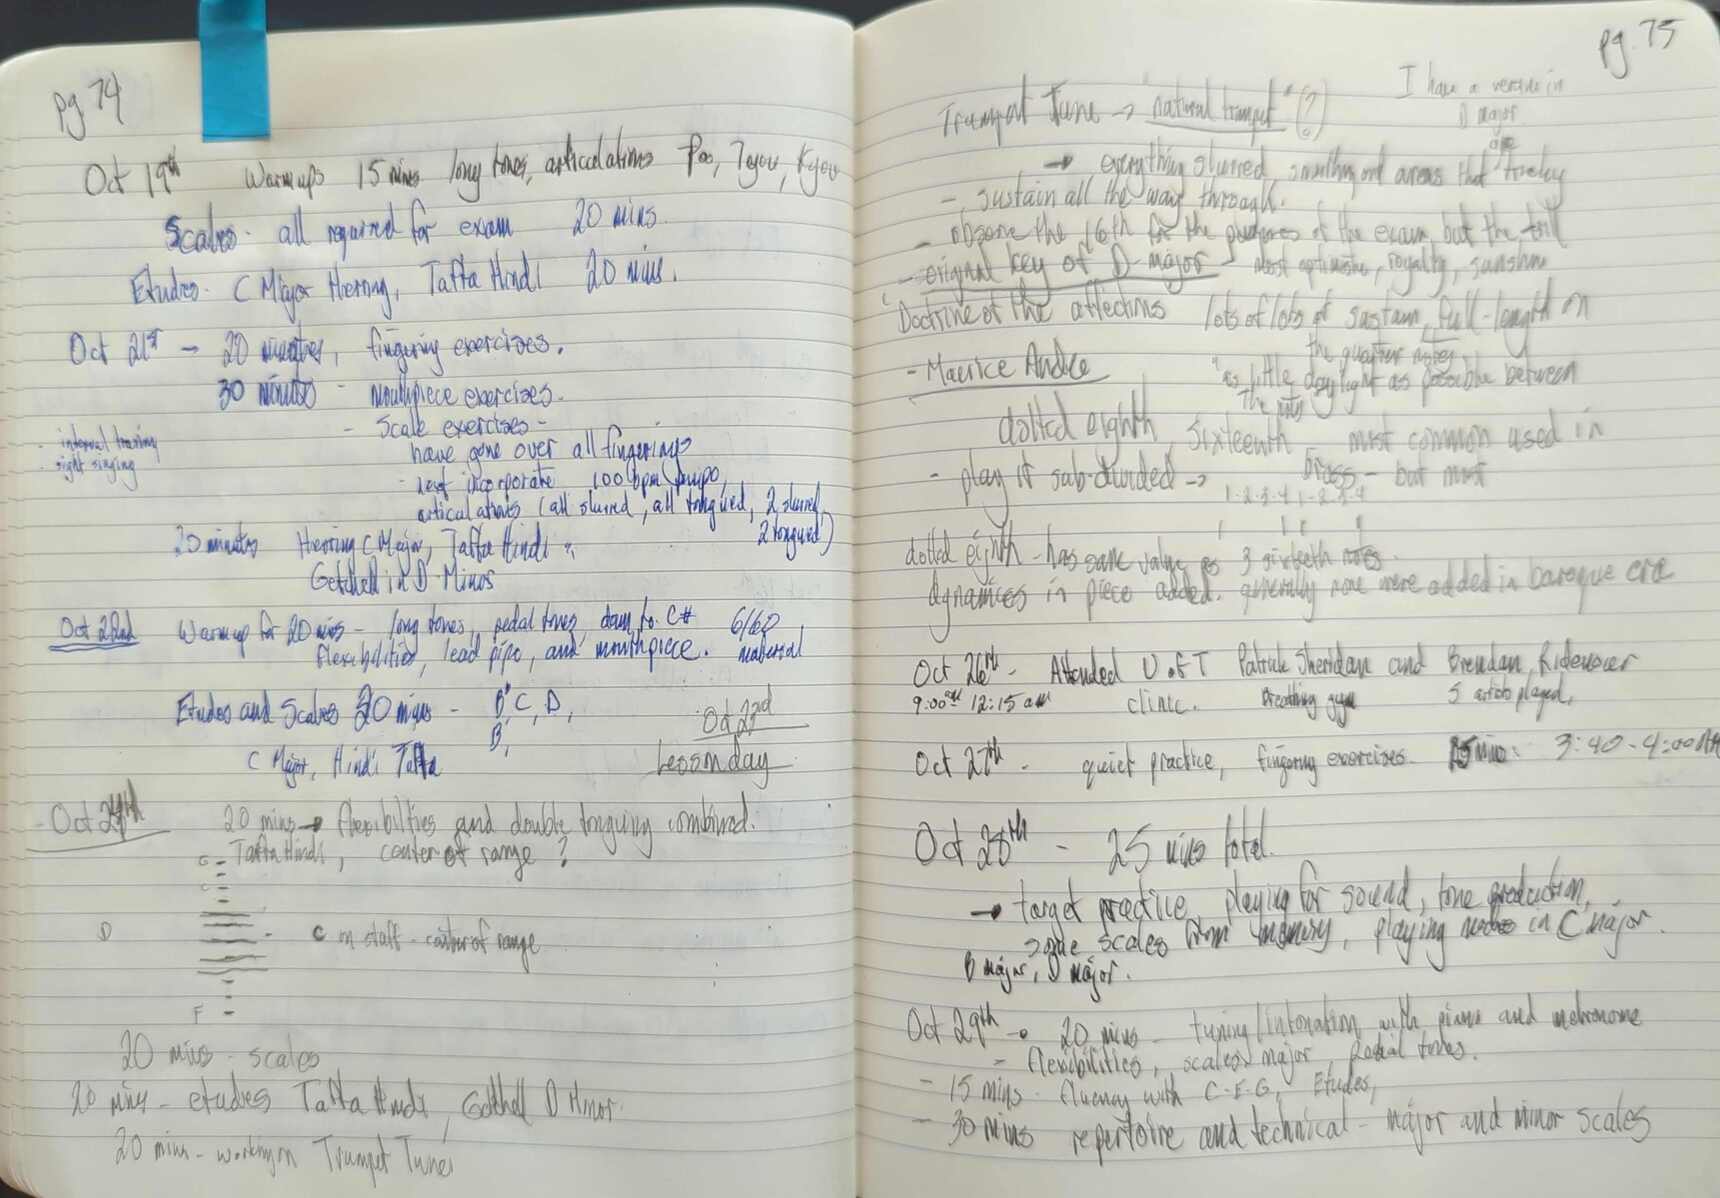 pg 74
Oct 19th Warmups 15 mins long tones, articulations Poo, Tyou, Kyou
Scales - all required for exam 20 mins.
Etudes - C Major Hering, Taffa Hindi 20 mins.
Oct 21st - 20 minutes, fingering exercises.
30 minutes - mouthpiece exercises -
- Scale exercises -
- interval training
- sight singing
have gone over all fingerings
- next incorporate 100 bpm tempo,
articulations (all slurred, all tongued, 2 slurred, 2 tongued)
20 minutes Hering C Major, Taffa Hindi
Getchell in D Minor
Oct 22nd Warmup for 20 mins - long tones, pedal tones, down to C# 6/60 material
flexibilities, lead pipe, and mouthpiece.
Etudes and Scales 20 mins - B, C, D,
B,
C Major, Hindi Taffa
Oct 23rd
Lesson day
- Oct 24th 20 mins → flexibilties and double tonguing combined.
- Taffa Hindi, center of range?
G
C
D C on staff - center of range
F
20 mins - scales
20 mins - etudes Taffa Hindi, Getchell D Minor.
20 mins - working on Trumpet Tune
pg. 75
I have a version in D major
Trumpet Tune → "natural trumpet" (?)
→ everything slurred, smoothing out areas that are tricky
- sustain all the way through.
- observe the 16th for the purposes of the exam, but the trill
- original key of D-major - most optimistic, royalty, sunshine
"Doctrine of the affections lots of lots of sustain, full-length on the quarter notes
- Maurice Andre "as little daylight as possible between the notes
dotted eighth, sixteenth most common used in
- play it sub-divided → brass - but most
1-2-3-4 1-2-3-4
dotted eighth - has same value as 3 sixteeth notes.
dynamices in piece added. generally none were added in baroque era
Oct 26th - Attended U of T Patrick Sheridan and Brendan Ridenour
9:00 am 12:15 am clinic. Breathing gym 5 artists played.
Oct 27th - quiet practice, fingering exercises 15 mins: 3:40 - 4:00 AM
Oct 28th - 25 mins total.
→ target practice playing for sound, tone production,
some scales from memory, playing modes in C major.
B major, D major.
Oct 29th - 20 mins - tuning/intonation with piano and metronome
- flexibilities, scales major, Pedal tones.
- 15 mins - fluency with C-E-G, Etudes,
- 30 mins repertoire and technical - major and minor scales